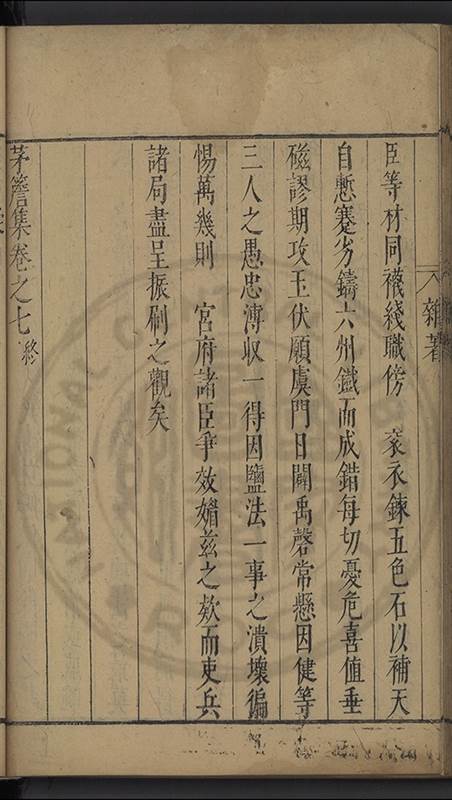 雜著
臣等材同襪綫職傍　袞衣鍊五色石以補天
自慙蹇劣鑄六州鐵而成錯每切憂危喜值垂
磁謬期攻玉伏願虞門日闢禹磬常懸因健等
三人之愚忠溥收一得因鹽法一事之潰壞徧
惕萬幾則　宮府諸臣爭效媢茲之欬而吏兵
諸局盡呈振刷之觀矣
茅簷集卷之七終